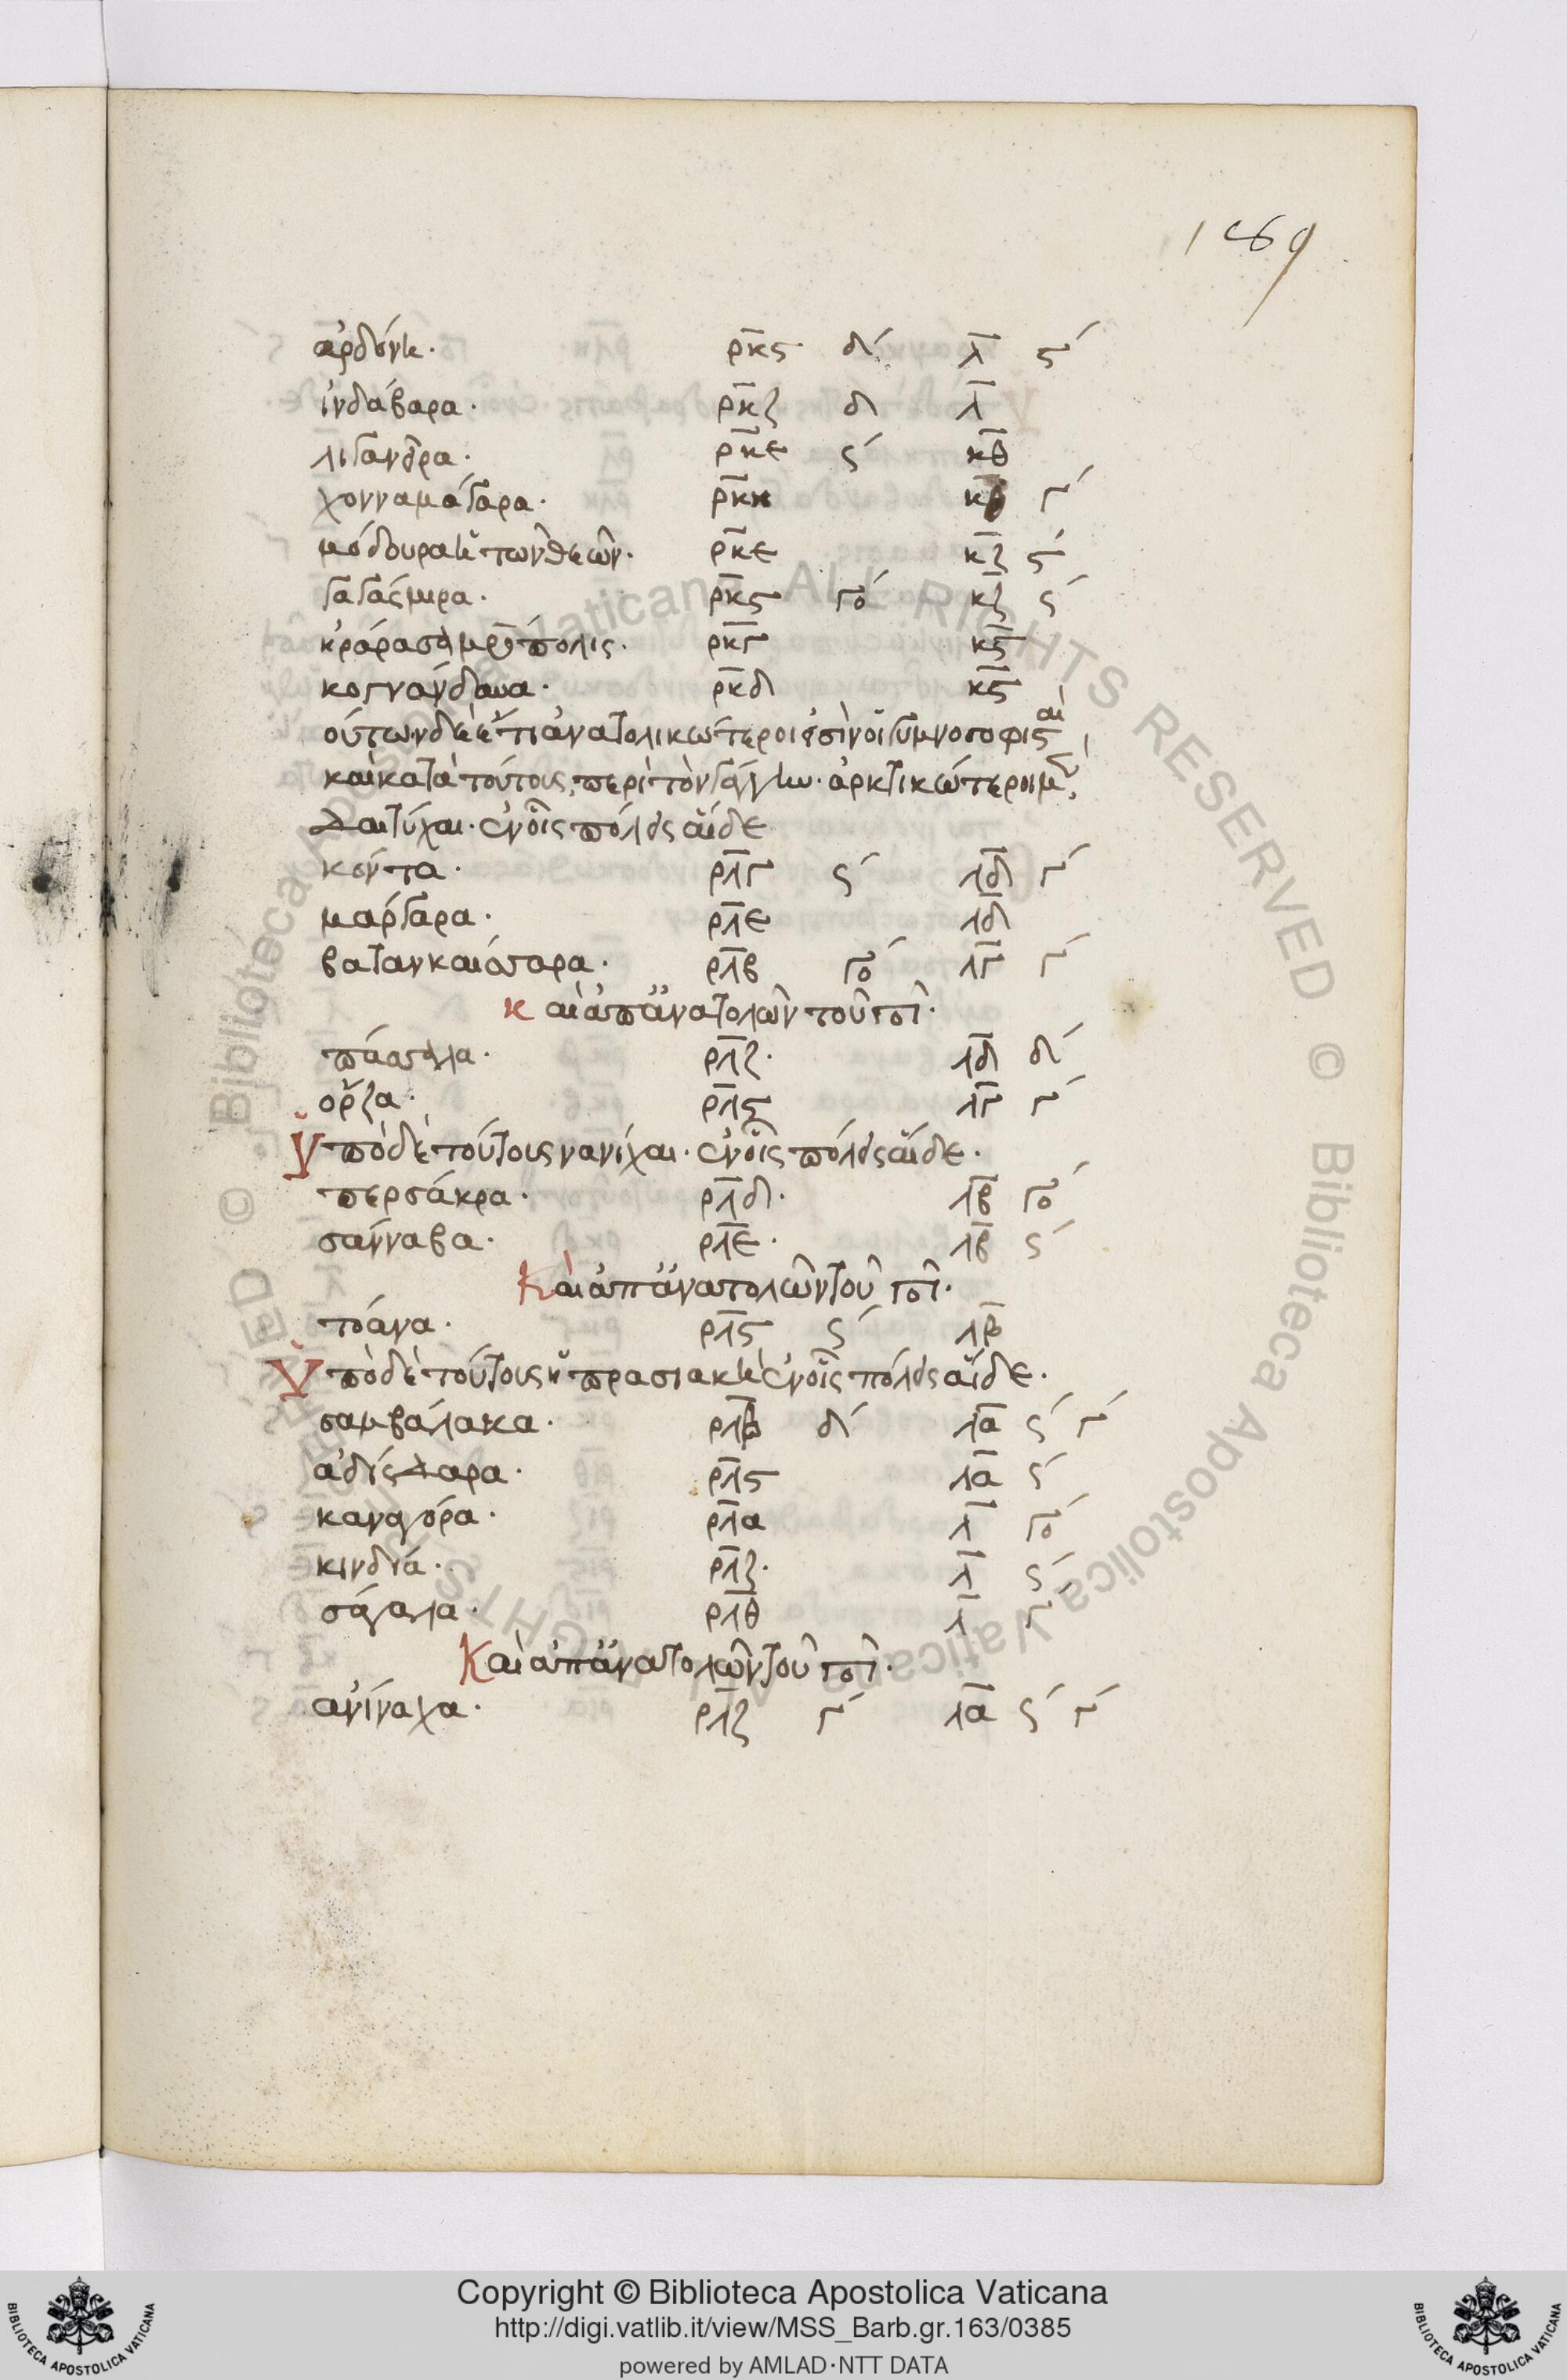 189
ἀρδόνη· ρκϛ δ´ λ ϛ´
ἰνδάβαρα· ρκζ δ λ
λιγανδρα· ρκε ϛ´ κθ
χονναμάγαρα· ρκη κθ γ´
μόδουρα ἡ τῶν θεῶν· ρκε κζ ϛ´
γαγάσμιρα· ρκϛ γο´ κζ ϛ´
ἐράρασα μρόπολις· ρκγ κϛ
κογνάνδαυα· ρκδ κϛ
οὕτων δὲ ἔτι ἀνατολικώτεροι εἰσὶν οἱ γυμνοσοφισταὶ
καὶ κατὰ τούτους, περὶ τὸν γάγγην· ἀρκτικώτεροι μὲν,
δαιτύχαι· ἐν οἷς πόλεις αἵδε
κόντα· ρλγ ϛ´ λδ γ´
μάργαρα· ρλε λδ
βατανκαίσαρα· ρλβ γο´ λγ γ´
καὶ ἀπ' ἀνατολῶν τοῦ ποτ·
πάσαλα· ρλζ· λδ δ´
ὄρζα· ρλϛ λγ γ´
Ὑπὸ δὲ τούτους νανίχαι· ἐν οἷς πόλεις αἵδε·
περσάκρα· ρλδ· λβ γο´
σάνναβα· ρλε· λβ ϛ´
Καὶ ἀπ' ἀνατολῶν τοῦ ποτ·
τοάνα· ρλϛ ϛ´ λβ
Ὑπὸ δὲ τούτους ἡ πρασιακὴ ἐν οἷς πόλεις αἵδε·
σαμβάλακα· ρλβ δ´ λα ϛ´ γ´
ἀδίσδαρα· ρλϛ λα ϛ´
καναγόρα· ρλα λ γο´
κινδιά· ρλζ· λ ϛ´
σάγαλα· ρλθ λ γ´
Καὶ ἀπ' ἀνατολῶν τοῦ ποτ·
ἀνίναχα· ρλζ γ´ λα ϛ´ γ´
Copyright © Biblioteca Apostolica Vaticana
http://digi.vatlib.it/view/MSS_Barb.gr.163/0385
powered by AMLAD·NTT DATA